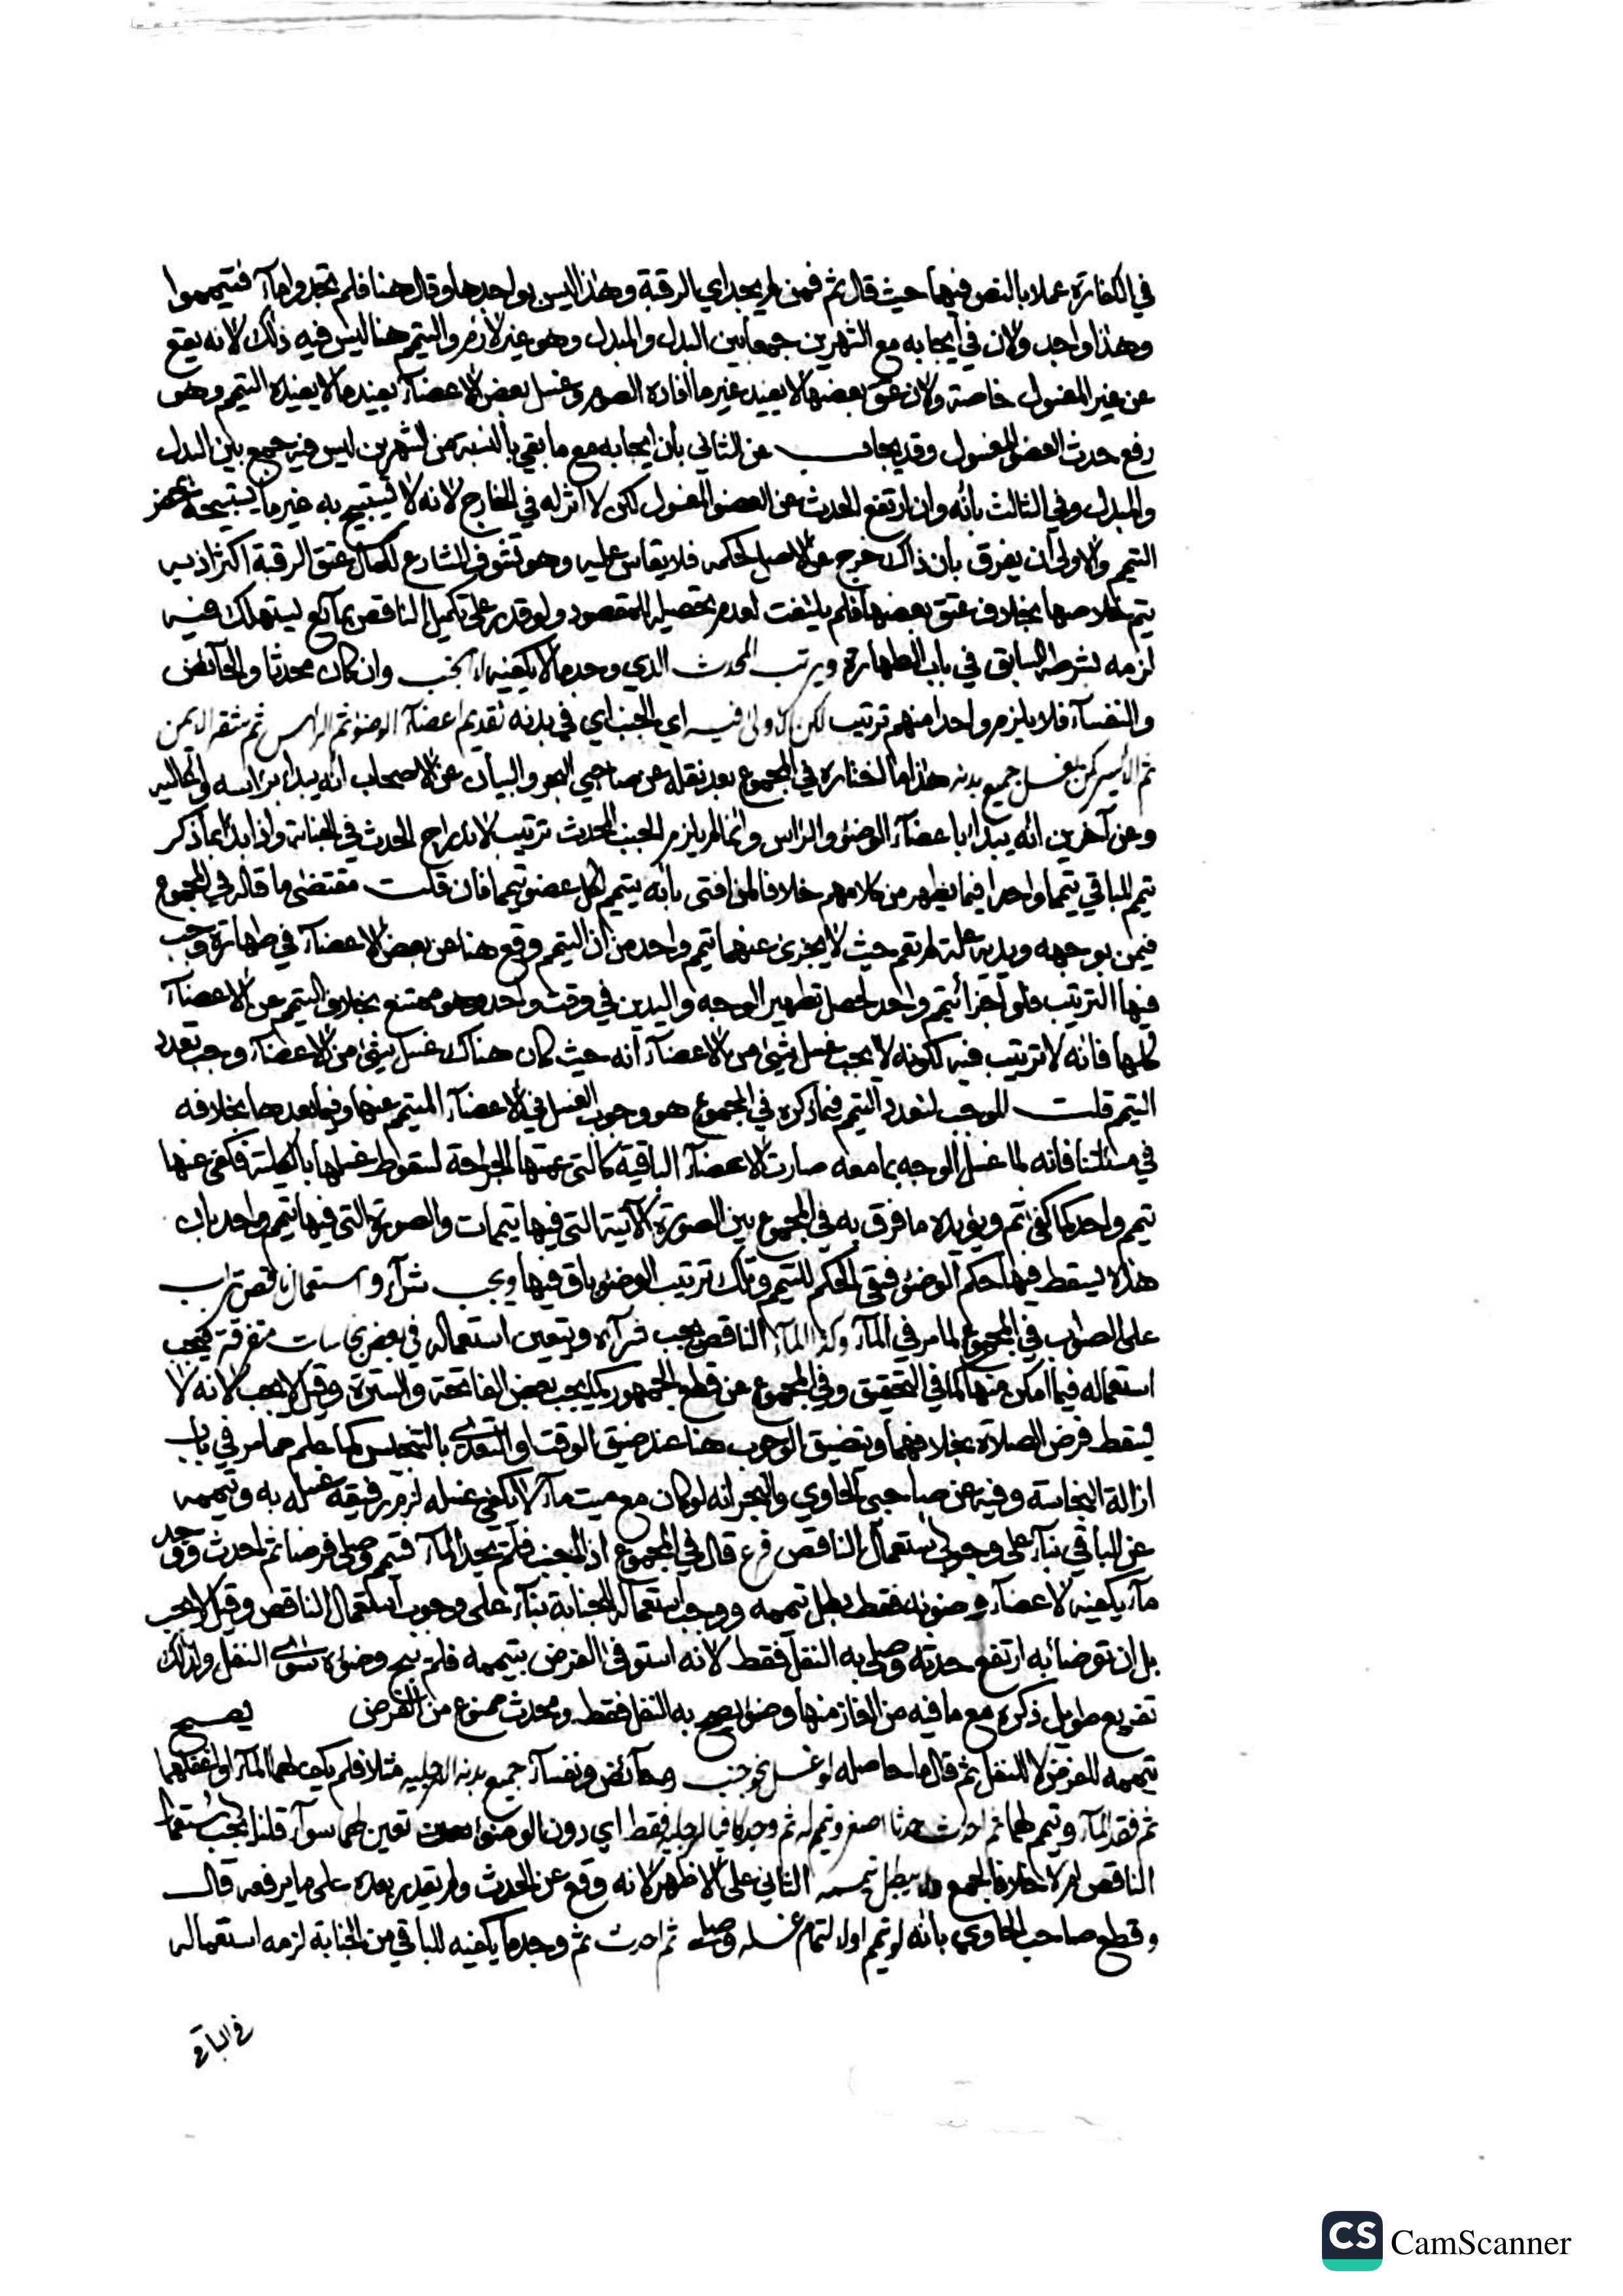 في الكفارة عملا بالنص فيهما حيث قال ثم فمن لم يجد اي الرقبة وهذا ليس بواجدها وقال هنا فلم تجدوا مآء فتيمموا
وهذا واجد ولان في ايجابه مع الشهرين جمعا بين البدل والمبدل وهو غير لازم والتيمم هنا ليس فيه ذلك لانه يقع
عن غير المغسول خاصة ولان عتق بعضها لا يفيد غير ما افاده الصوم وغسل بعض الاعضآء يفيد ما لا يفيده التيمم وهو
رفع حدث العضو المغسول وقد يجاب عن الثاني بان ايجابه مع ما بقي بالنسبة من الشهرين ليس فيه جمع بين البدل
والمبدل وفي الثالث بانه وان ارتفع الحدث عن العضو المغسول لكن لا اثر له في الخارج لانه لا يستبيح به غير ما يستبيحه بمحض
التيمم والاولى ان يفرق بان ذاك خرج عن الاصل لحكمة فلا يقاس عليه وهو تشوف الشارع لكمال عتق الرقبة اكثر اذ به
يتم خلاصها بخلاف عتق بعضها فلم يلتفت لعدم تحصيله المقصود ولو قدر على تكميل الناقص بمآئع يستهلك فيه
لزمه بشرطه السابق في باب الطهارة ويرتب المحدث الذي وجد ما لا يكفيه لا الجنب وان كان محدثا والحآئض
والنفسآء فلا يلزم واحدا منهم ترتيب لكن الاولى فيه اي الجنب اي في بدنه تقديم اعضآء الوضوء ثم الراس ثم شقه الايمن
ثم الايسر كمن يغسل جميع بدنه هذا ما اختاره في المجموع بعد نقله عن صاحبي البحر والبيان عن الاصحاب انه يبدا براسه واعاليه
وعن آخرين انه يبدا باعضآء الوضوء والراس وانما لم يلزم الجنب المحدث ترتيب لاندراج الحدث في الجنابة واذا بدا بما ذكر
تيمم للباقي تيمما واحدا فيما يظهر من كلامهم خلافا لمن افتى بانه يتيمم لكل عضو تيمما فان قلت مقتضى ما قاله في المجموع
فيمن بوجهه ويديه علة لم تعم حيث لا يجزئ عنهما تيمم واحد من ان التيمم وقع هنا عن بعض الاعضآء في طهارة وجب
فيها الترتيب فلو اجزا تيمم واحد لحصل تطهير الوجه واليدين في وقت واحد وهو ممتنع بخلاف التيمم عن الاعضآء
كلها فانه لا ترتيب فيه لكونه لا يجب غسل شيئ من الاعضآء انه حيث كان هناك غسل شيئ من الاعضآء وجب تعدد
التيمم قلت الموجب لتعدد التيمم فيما ذكره في المجموع هو وجوب الغسل في الاعضآء المتيمم عنها وفيما بعدها بخلافه
في مسئلتنا فانه لما غسل الوجه بما معه صارت الاعضآء الباقية كالتي عمتها الجراحة لسقوط غسلها بالكلية فكفى عنها
تيمم واحد كما كفى ثم ويؤيده ما فرق به في المجموع بين الصورة الآتية التي فيها تيممات والصورة التي فيها تيمم واحد بان
هذه يسقط فيها حكم الوضوء فبقي الحكم للتيمم وتلك ترتيب الوضوء باق فيها ويجب شرآء واستعمال ناقص تراب
على الصواب في المجموع لما مر في المآء وكذا المآء الناقص يجب شرآءه ويتعين استعماله في بعض نجاسات متفرقة فيجب
استعماله فيما امكن منها كما في التحقيق وفي المجموع عن قطع الجمهور كما يجب بعض الفاتحة والسترة وقيل لا يجب لانه لا
يسقط فرض الصلاة بخلافهما وتضيق الوجوب هنا عند ضيق الوقت او التعدي بالتنجيس كما علم مما مر في باب
ازالة النجاسة وفيه عن صاحبي الحاوي والبحر انه لو كان مع ميت مآء لا يكفي غسله لزم رفيقه غسله به وتيممه
عن الباقي بنآء على وجوب استعمال الناقص فرع قال في المجموع اذا اجنب فلم يجد المآء فتيمم وصلى فرضا ثم احدث ووجد
مآء يكفيه لاعضآء وضوئه فقط بطل تيممه ووجب استعماله للجنابة بنآء على وجوب استعمال الناقص وقيل لا يجب
بل ان توضا به ارتفع حدثه وصلى به النفل فقط لانه استوفى الفرض بتيممه فلم يبح وضوءه سوى النفل ولذلك
تفريع طويل ذكره مع ما فيه من الغاز منها وضوء يصح به النفل فقط ومحدث ممنوع من الفرض يصح
تيممه للفرض لا للنفل ثم قال ما حاصله لو غسل نحو جنب وحآئض ونفسآء جميع بدنه الا رجليه مثلا فلم يكف لهما المآء او اغفلهما
ثم فقد المآء وتيمم لهما ثم احدث حدثا اصغر وتيمم له ثم وجد كافيا لرجليه فقط اي دون الوضوء تعين لهما سوآء قلنا يجب استعمال
الناقص ام لا خلافا لجمع ولا يبطل تيممه الثاني على الاظهر لانه وقع عن الحدث ولم يقدر بعده على ما يرفعه قال
وقطع صاحب الحاوي بانه لو تيمم اولا لتمام غسله وصلى ثم احدث ثم وجد ما يكفيه للباقي من الجنابة لزمه استعماله
في الباقي
CS CamScanner